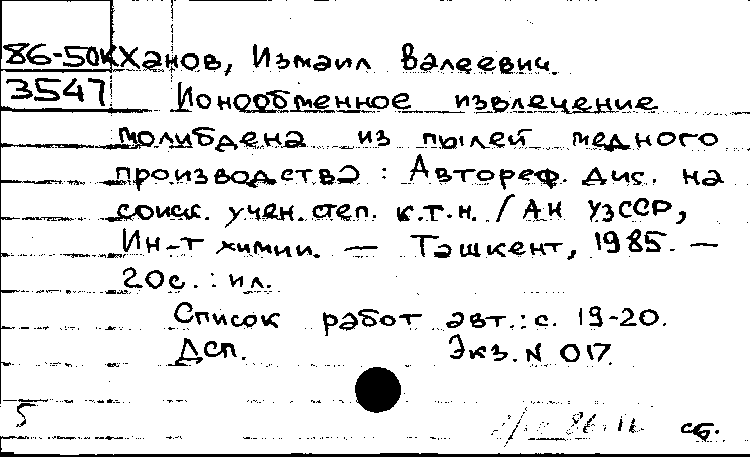 86-50К Ханов, Измаил Валеевич.
3547 Ионообменное извлечение
молибдена из пылей медного
производства : Автореф. дис. на
соиск. учен. степ. к.т.н. / АН УзССР,
Ин-т химии. — Ташкент, 1985. —
20с. : ил.
Список работ авт.: с. 19-20.
Дсп. Экз. N 017.
5 сб.